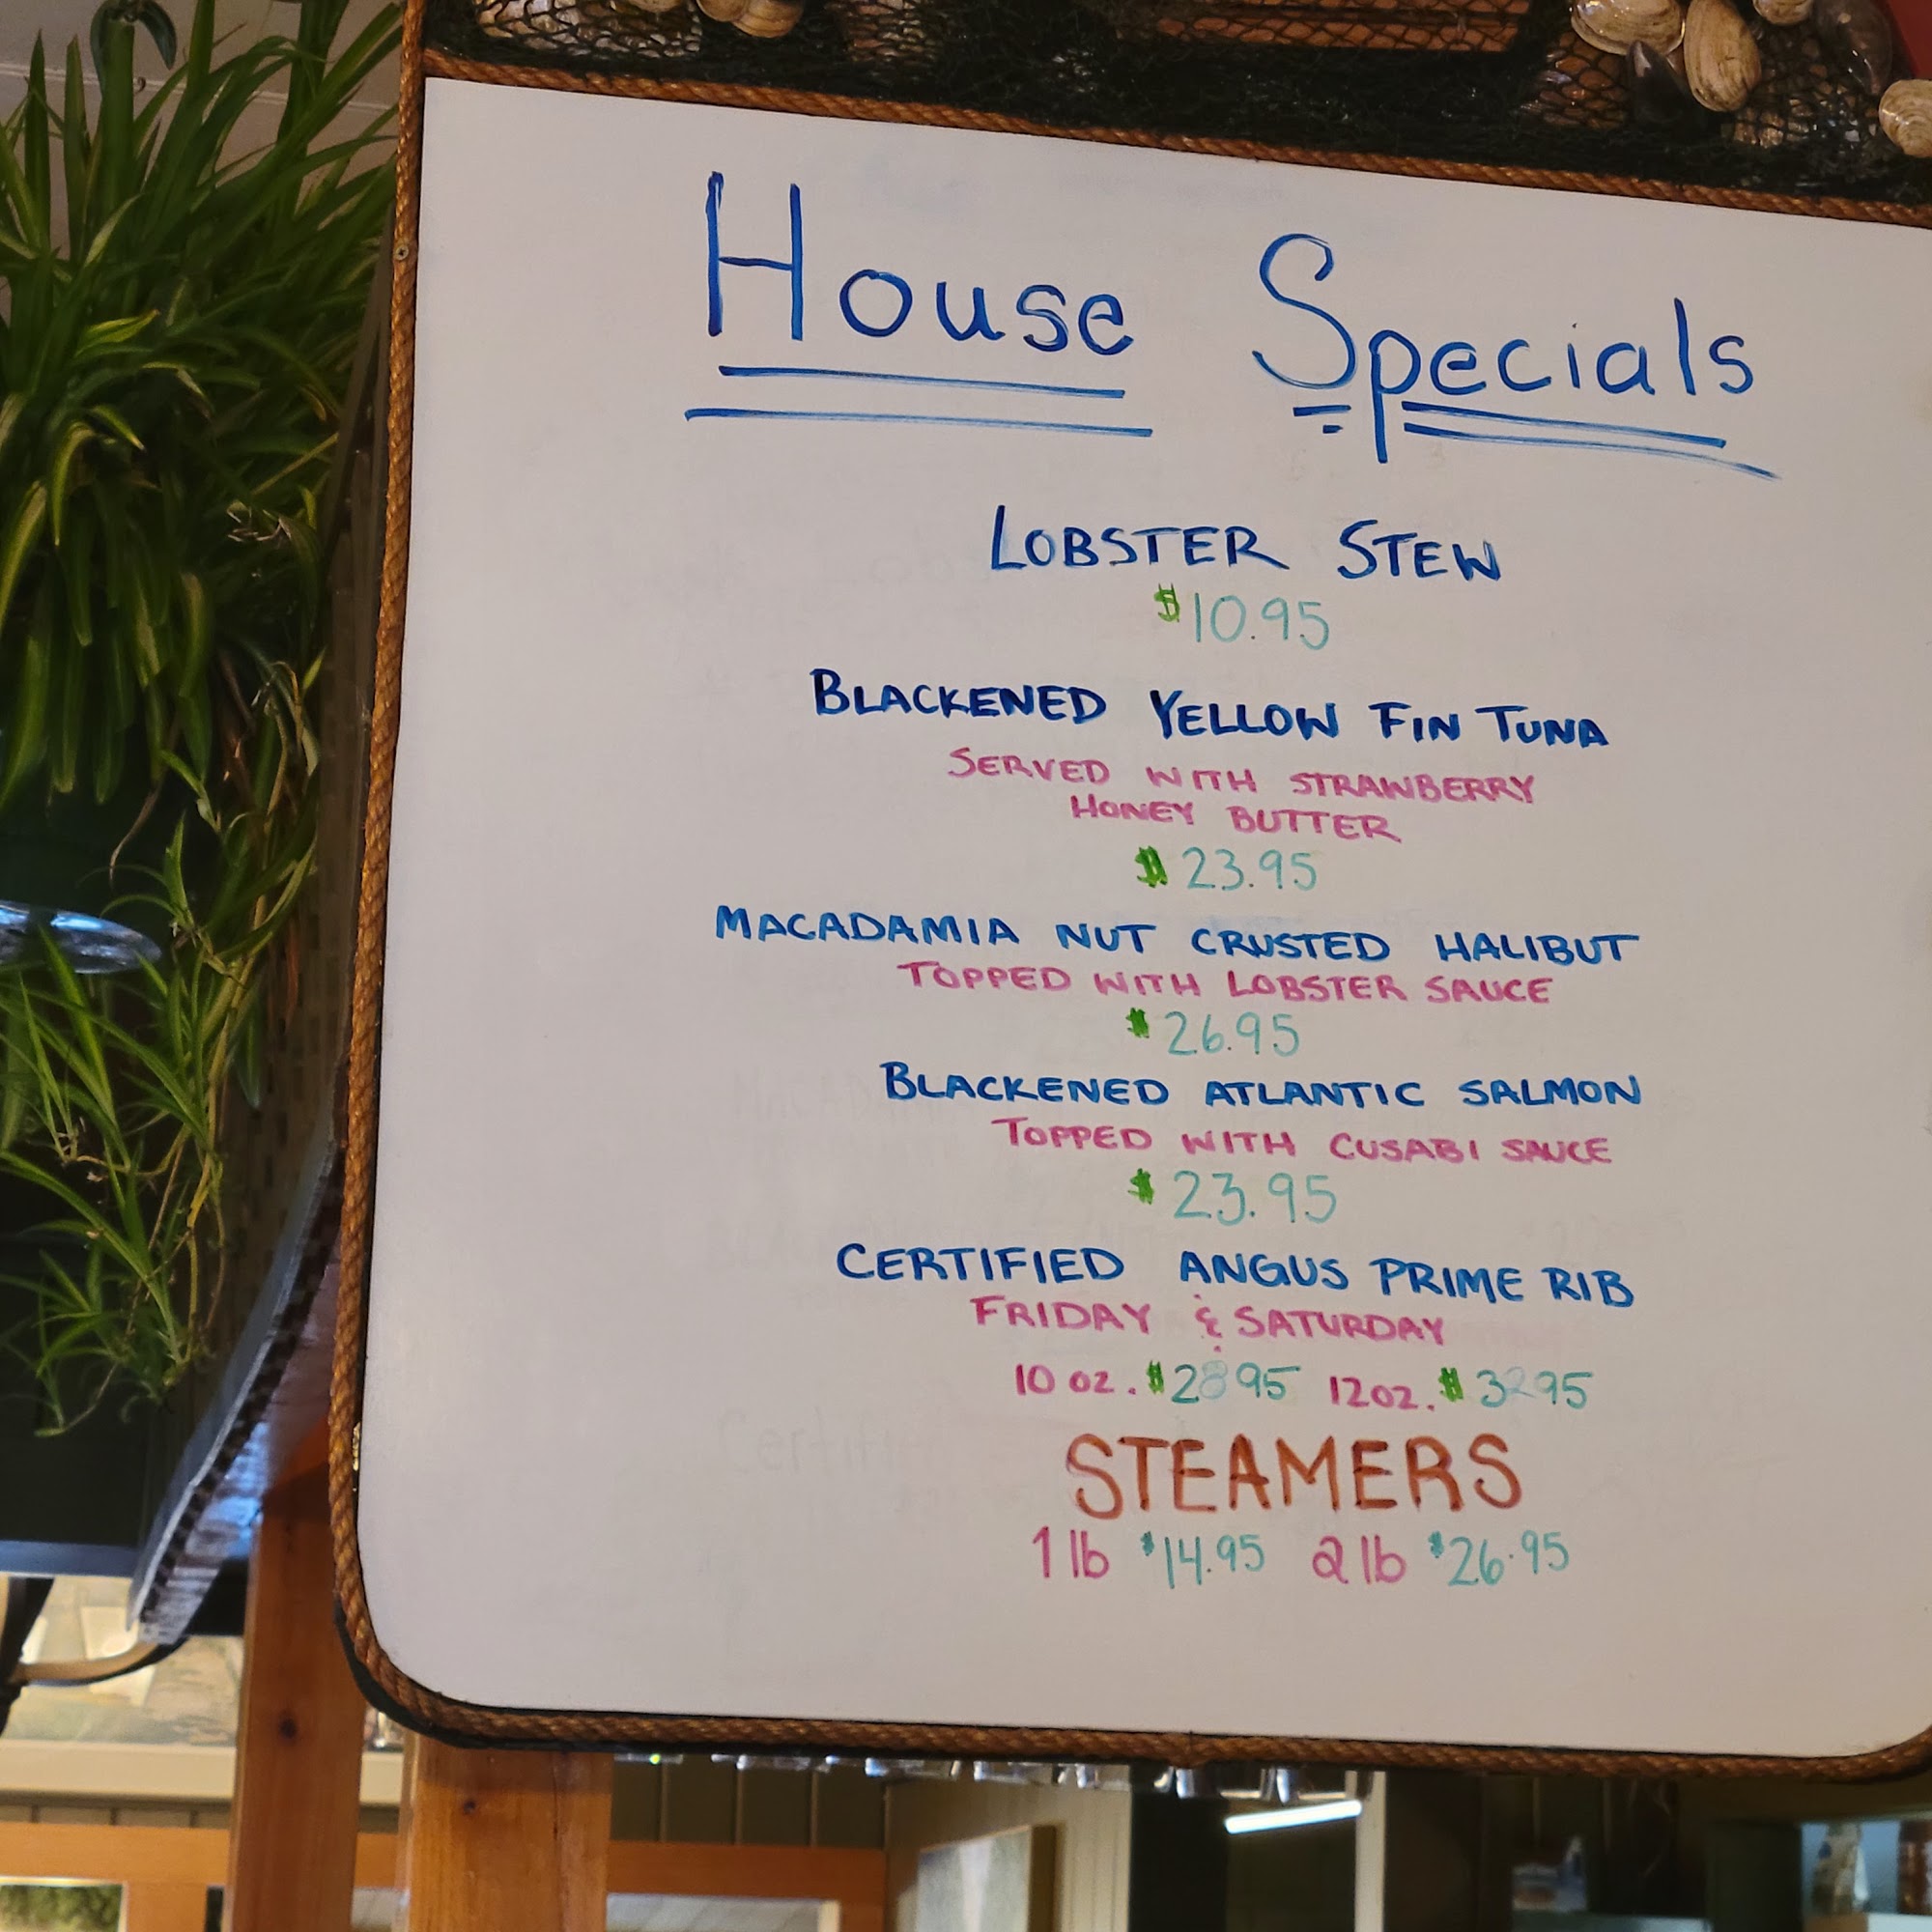 House Specials
LOBSTER STEW
$10.95
BLACKENED YELLOW FIN TUNA
SERVED WITH STRAWBERRY
HONEY BUTTER
$23.95
MACADAMIA NUT CRUSTED HALIBUT
TOPPED WITH LOBSTER SAUCE
$26.95
BLACKENED ATLANTIC SALMON
TOPPED WITH CUSABI SAUCE
$23.95
CERTIFIED ANGUS PRIME RIB
FRIDAY & SATURDAY
10 oz. $28 95 12oz. $32 95
STEAMERS
1 lb $14.95 2 lb $26.95